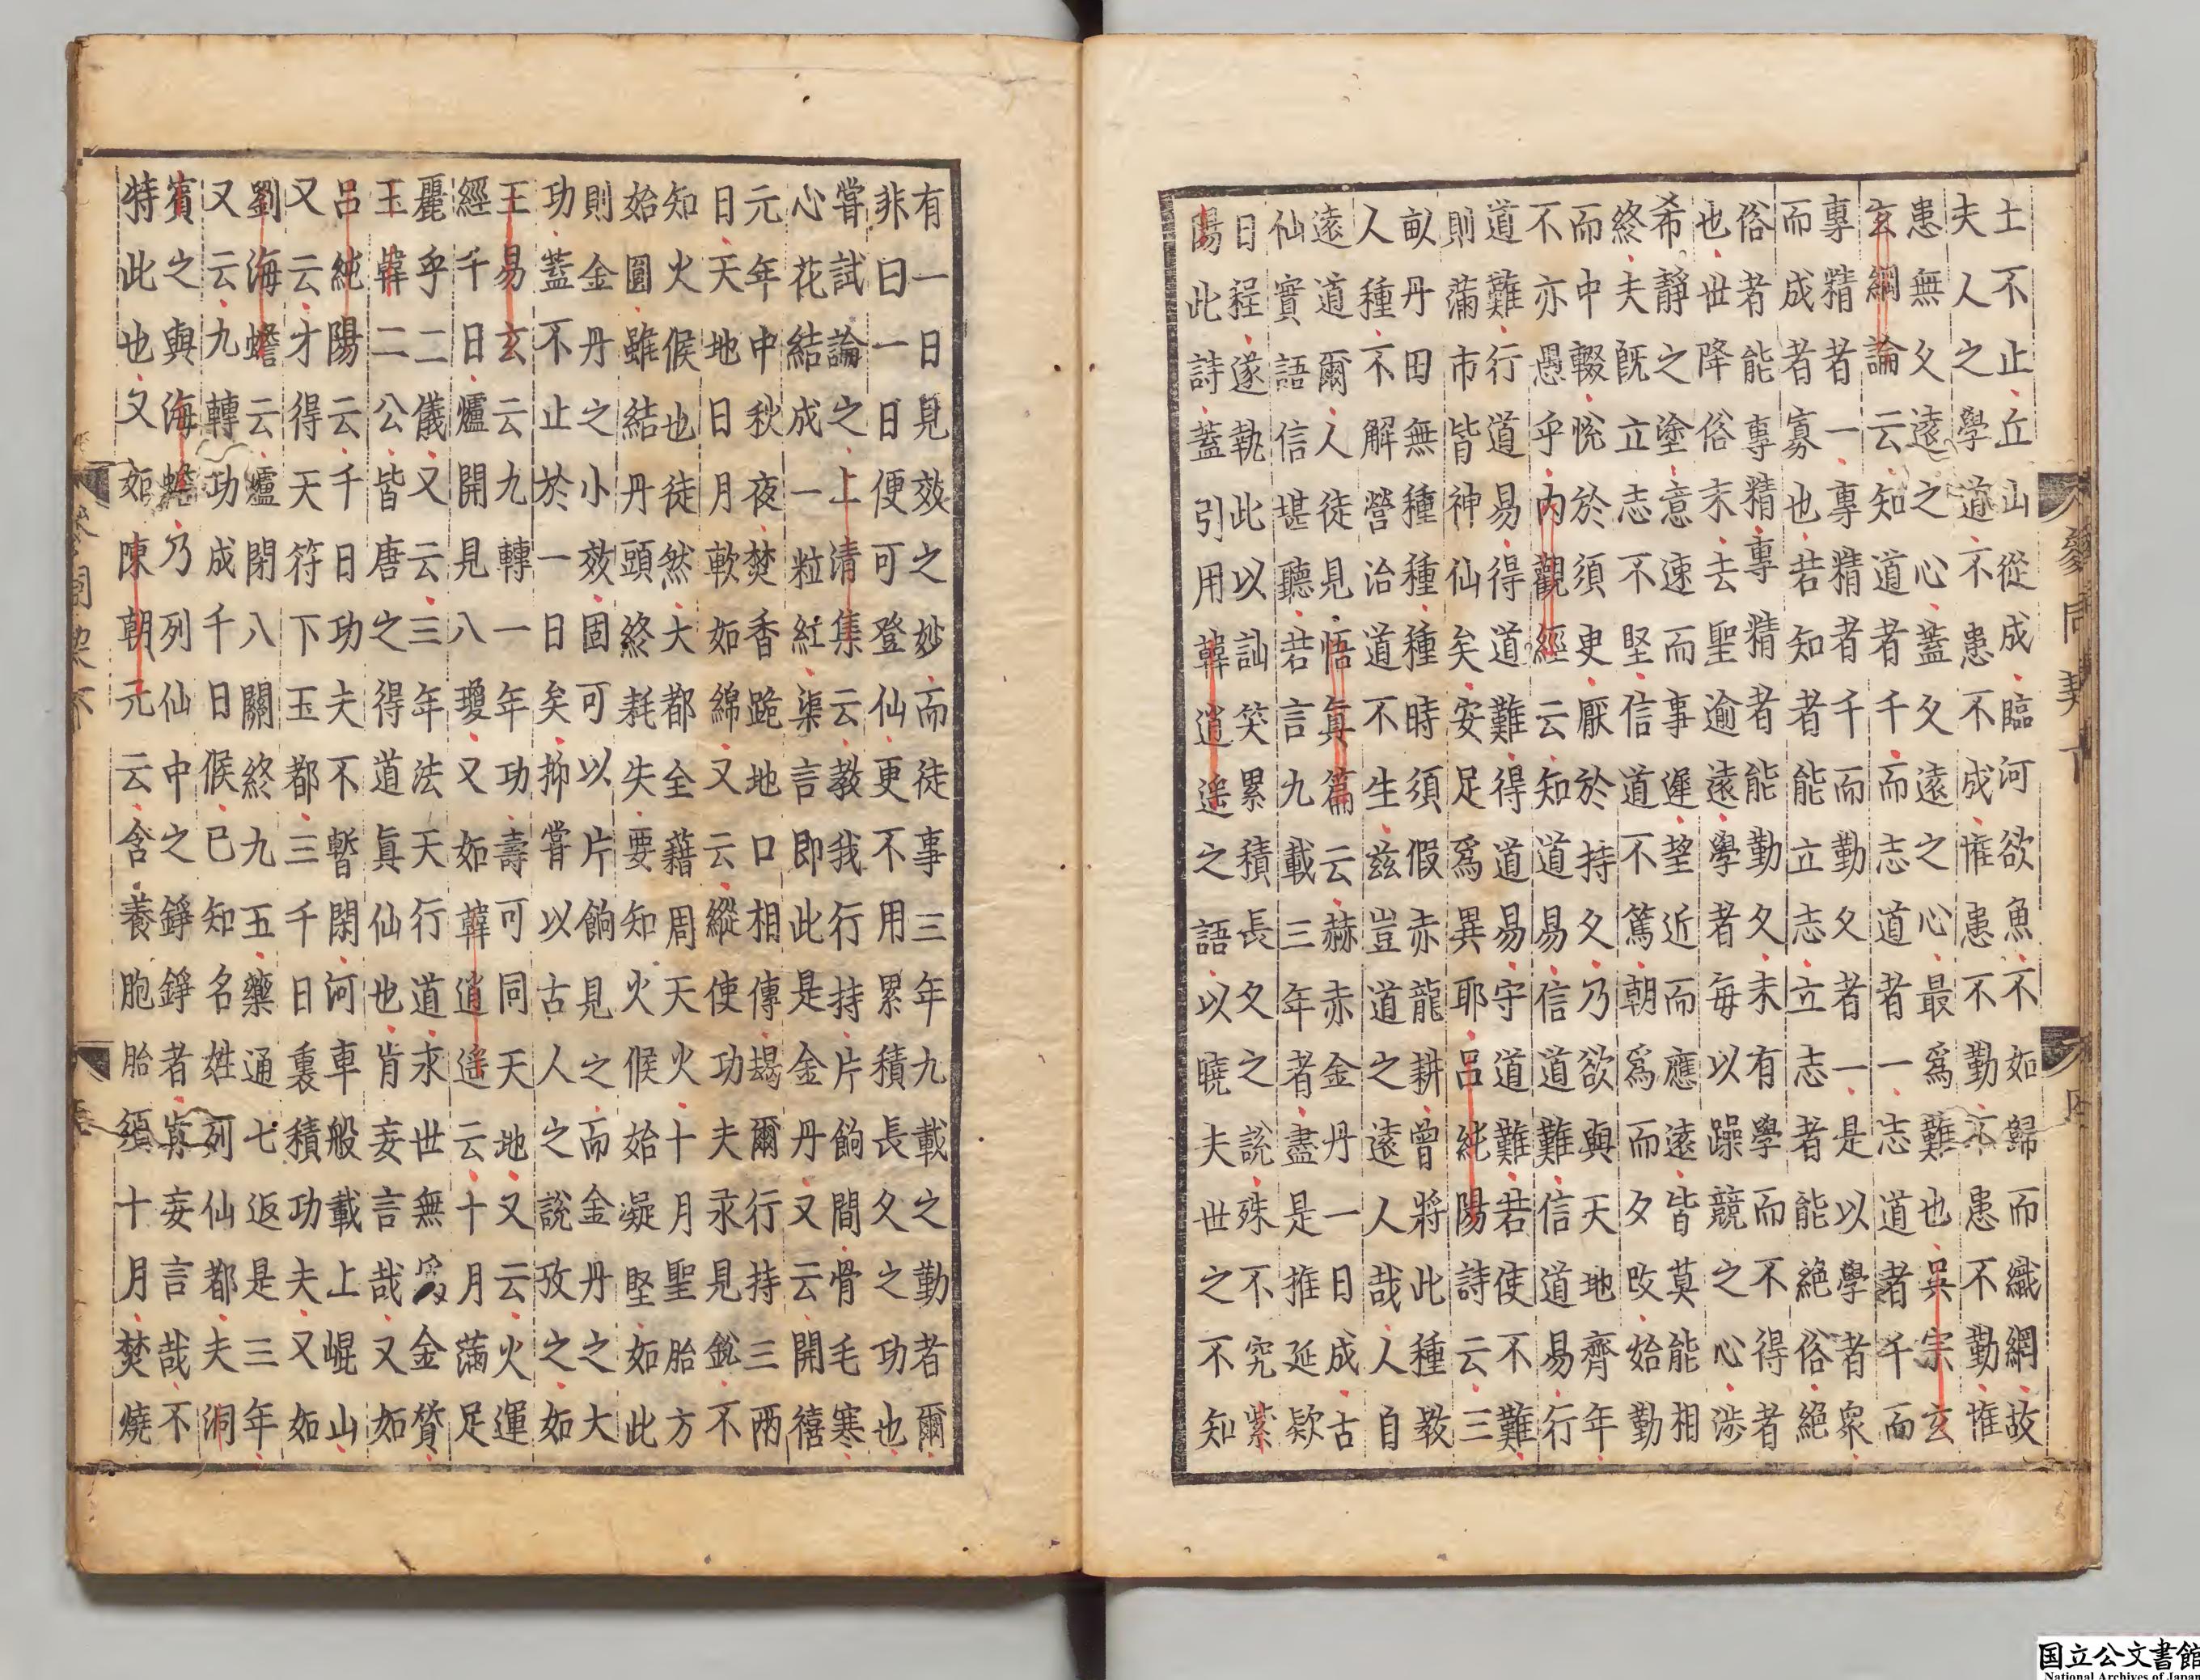 參同契下
四
土不止丘山從成臨河欲魚不如歸而織網故
夫人之學道不患不成惟患不勤不患不勤惟
患無久遠之心蓋久遠之心最爲難也吳宗玄
玄綱論云知道者千而志道者一志道者千而
專精者一專精者千而勤久者一是以學者衆
而成者寡也若知者能立志立志者能絶俗絶
俗者能專精專精者能勤久未有學而不得者
也世降俗末去聖逾遠學者每以躁競之心涉
希静之塗意速而事遲望近而應遠皆莫能相
終夫既立志不堅信道不篤朝爲而夕改始勤
而中輟悅於須臾厭於持久乃欲與天地齊年
不亦愚乎内觀經云知道易信道難信道易行
道難行道易得道難得道易守道難若使不難
則滿市皆神仙矣安足爲異耶呂純陽詩云三
畝丹田無種種種時須假赤龍耕曾將此種教
人種不解營治道不生茲豈道之遠人哉人自
遠道爾人徒見悟真篇云赫赤金丹一日成古
仙實語信堪聽若言九載三年者盡是推延欵
日程遂執此以訕笑累積長久之說殊不究紫
陽此詩蓋引用韓逍遙之語以曉夫世之不知
有一日見效之妙而徒事三年九載之勤者爾
非曰一日便可登仙更不用累積長久之功也
嘗試論之上清集云教我行持片餉間骨毛寒
心花結成一粒紅渠言即此是金丹又云開禧
元年中秋夜焚香跪地口相傳朅爾行持三兩
日天地日月軟如綿又云縱使功夫汞見鉛不
知火候也徒然大都全藉周天火十月聖胎方
始圓雖結丹頭終耗失要知火候始凝堅如此
則金丹之小效固可以片餉見之而金丹之大
功蓋不止於一日矣抑嘗以古人之說攷之如
王易玄云九轉一年功壽可同天地又云火運
經千日爐開見八瓊又如韓逍遙云十月滿足
麗乎二儀又云三年法天行道求世無金贇
玉韓二公皆唐之得道眞仙也肯妄言哉又如
呂純陽云千日功夫不暫閑河車般載上崐山
又云才得天符下玉都三千日裏積功夫又如
劉海蟾云爐閉八關終九五藥通七返是三年
又云九轉功成千日候已知名姓列仙都夫洞
賓之與海蟾乃列仙中之錚錚者肯妄言哉不
特此也又如陳朝元云含養胞胎須十月焚燒
国立公文書館
National Archives of Japan